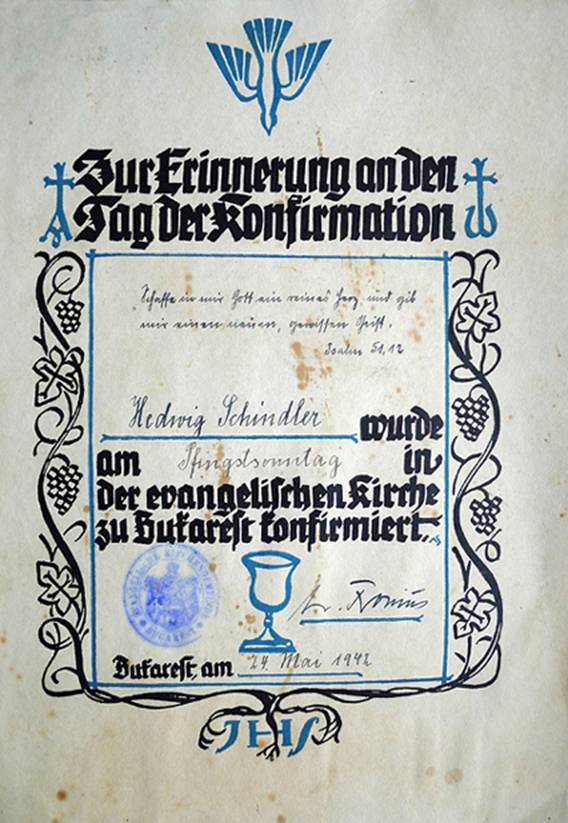 Zur Erinnerung an den
Tag der Konfirmation
Schaffe in mir Gott ein reines Herz und gib
mir einen neuen, gewissen Geist.
Psalm 51,12
Hedwig Schindler wurde
am Pfingstsonntag in
der evangelischen Kirche
zu Bukarest konfirmiert.
EVANGELISCHE KIRCHENGEMEINDE
BUKAREST
Bukarest, am 24. Mai 1942
JHS